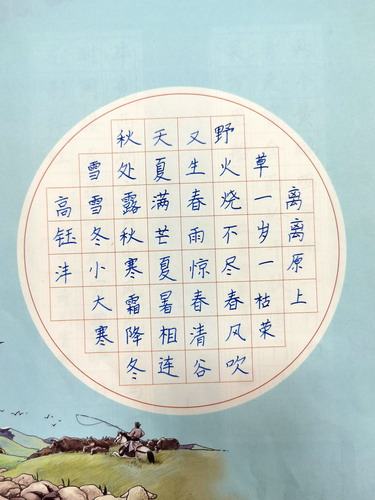 离离原上
草一岁一枯荣
野火烧不尽春风吹
又生春雨惊春清谷
天夏满芒夏暑相连
秋处露秋寒霜降冬
雪雪冬小大寒
高钰沣